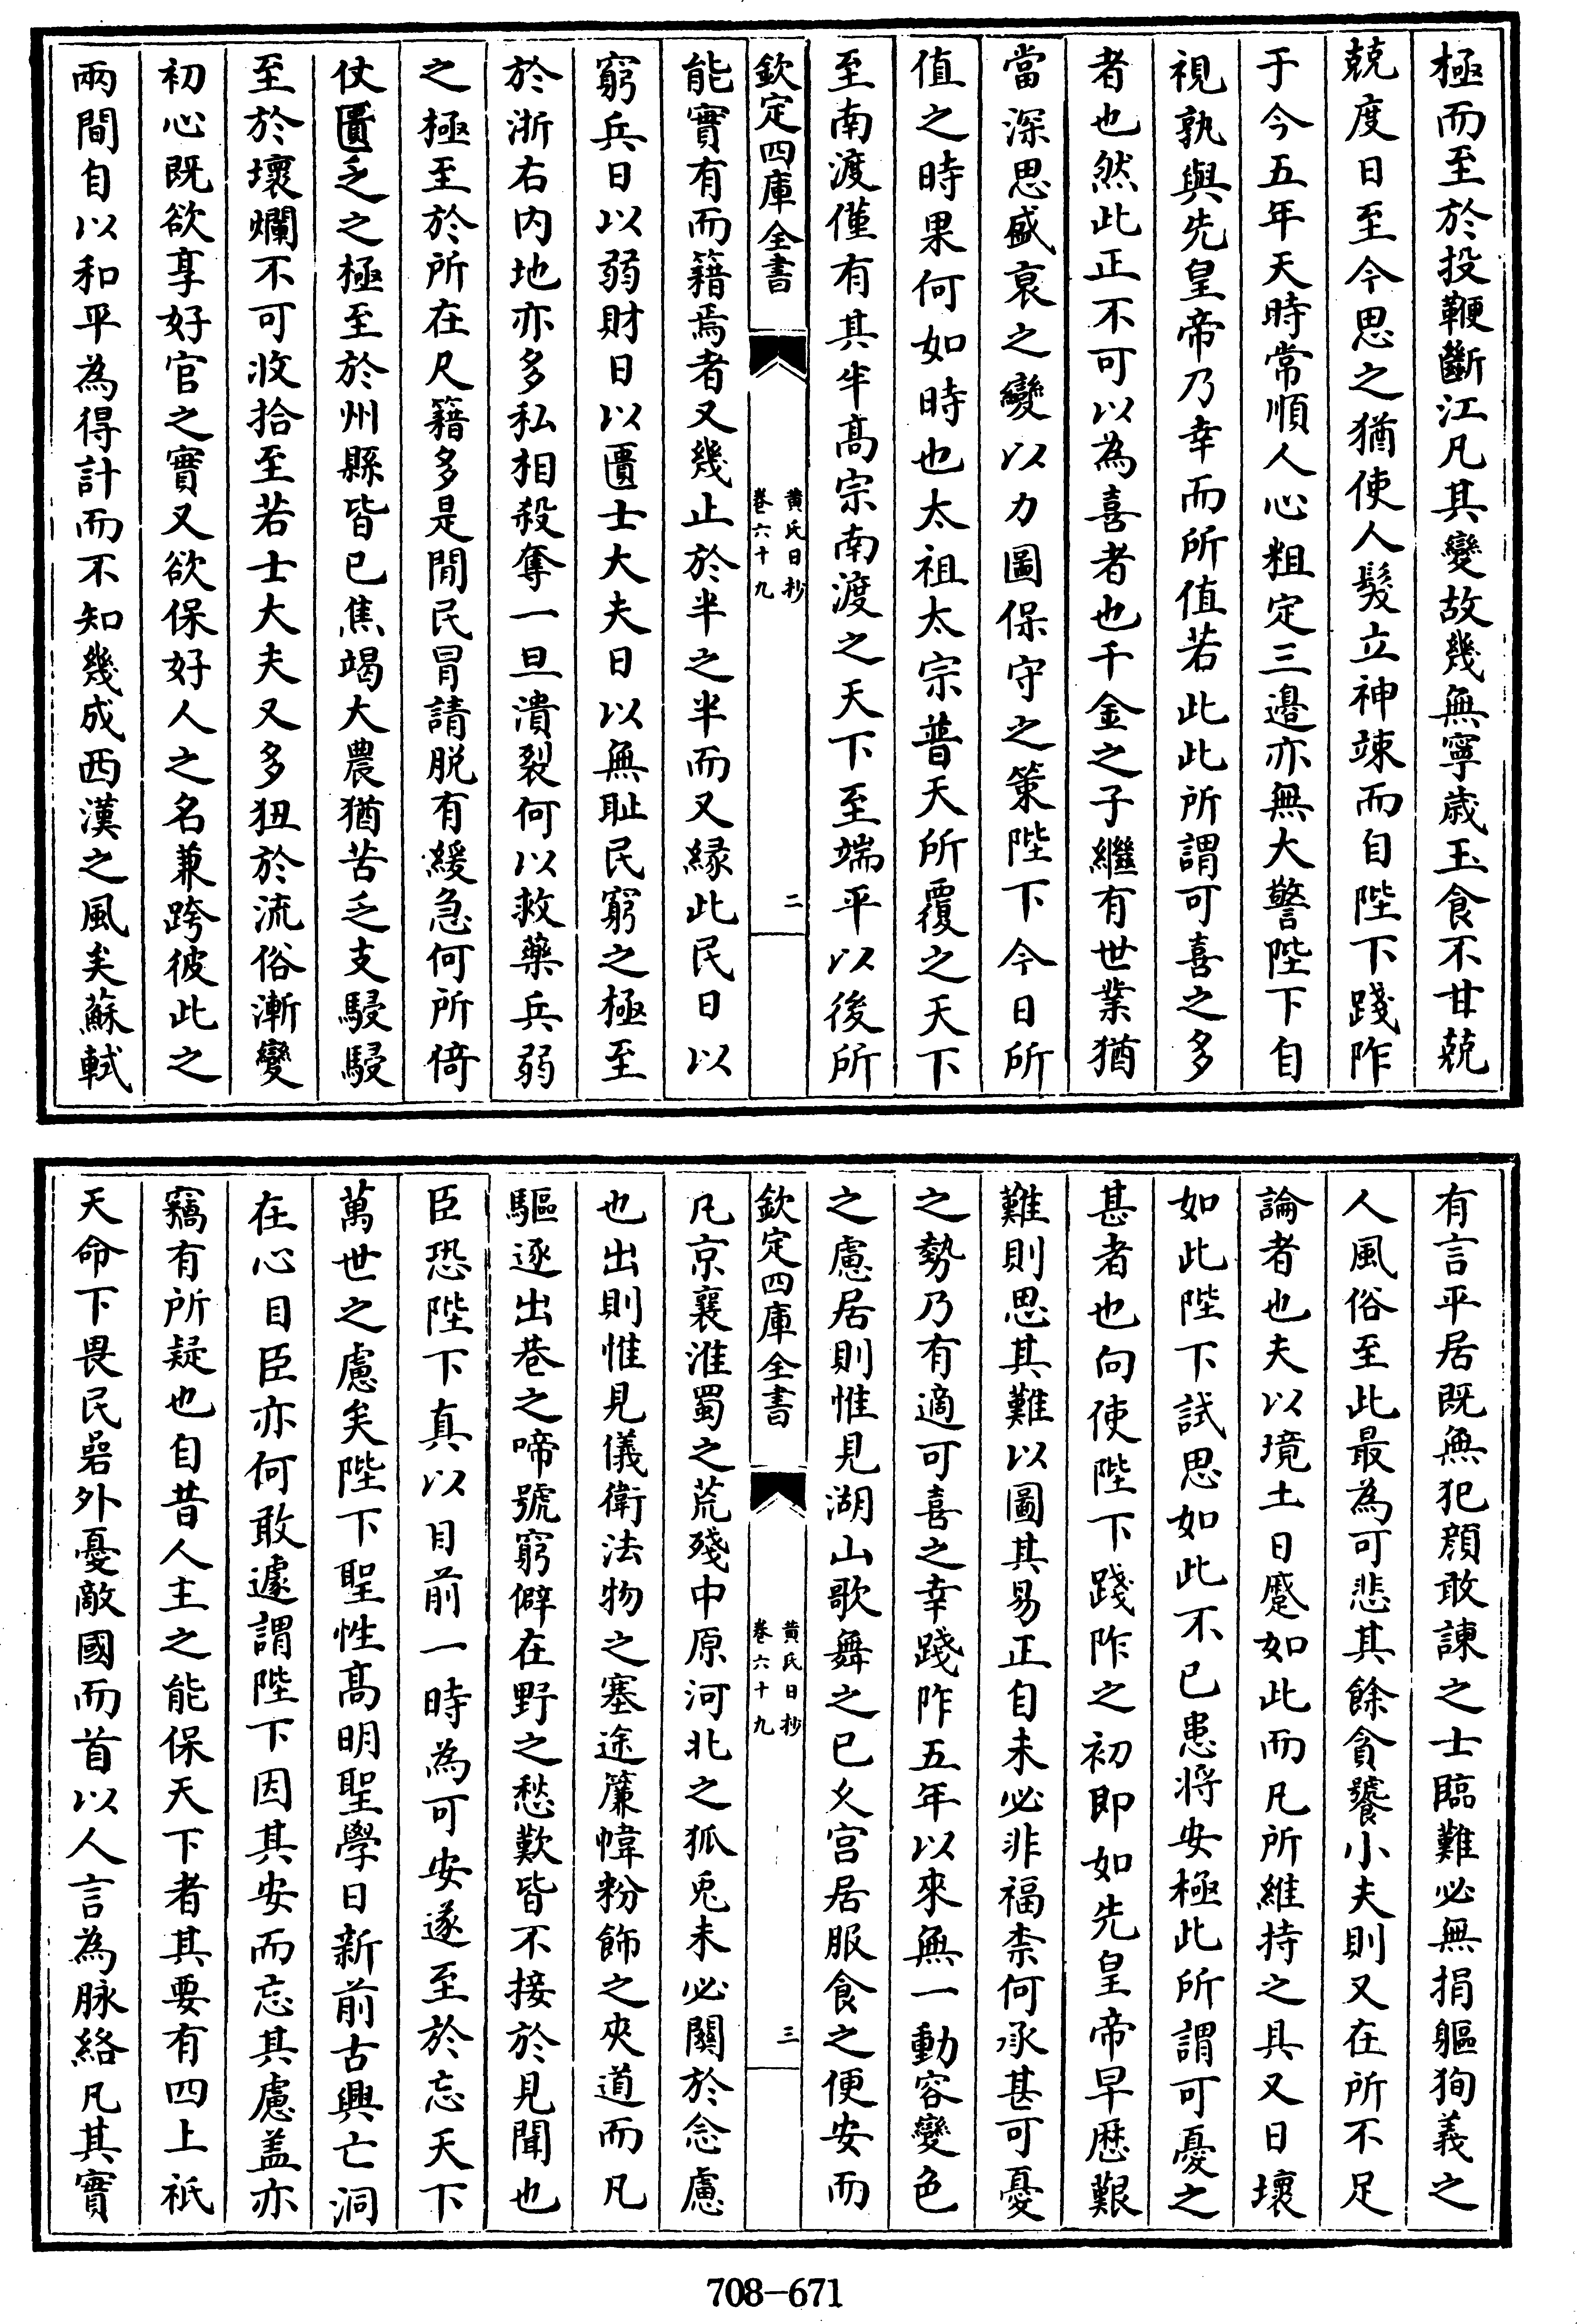 極而至於投鞭斷江凡其變故幾無寧歲玉食不甘兢
兢度日至今思之猶使人髮立神竦而自陛下踐阼
于今五年天時常順人心粗定三邊亦無大警陛下自
視孰與先皇帝乃幸而所值若此此所謂可喜之多
者也然此正不可以為喜者也千金之子繼有世業猶
當深思盛衰之變以力圖保守之策陛下今日所
值之時果何如時也太祖太宗普天所覆之天下
至南渡僅有其半高宗南渡之天下至端平以後所
欽定四庫全書
黃氏日抄
卷六十九
二
能實有而籍焉者又幾止於半之半而又緣此民日以
窮兵日以弱財日以匱士大夫日以無耻民窮之極至
於浙右内地亦多私相殺奪一旦潰裂何以救藥兵弱
之極至於所在尺籍多是閒民冒請脫有緩急何所倚
仗匱乏之極至於州縣皆已焦竭大農猶苦乏支駸駸
至於壞爛不可收拾至若士大夫又多狃於流俗漸變
初心既欲享好官之實又欲保好人之名兼跨彼此之
兩間自以和平為得計而不知幾成西漢之風矣蘇軾
有言平居既無犯顔敢諫之士臨難必無捐軀狥義之
人風俗至此最為可悲其餘貪饕小夫則又在所不足
論者也夫以境土日蹙如此而凡所維持之具又日壞
如此陛下試思如此不已患將安極此所謂可憂之
甚者也向使陛下踐阼之初即如先皇帝早歷艱
難則思其難以圖其易正自未必非福柰何承甚可憂
之勢乃有適可喜之幸踐阼五年以來無一動容變色
之慮居則惟見湖山歌舞之已久宫居服食之便安而
欽定四庫全書
黃氏日抄
卷六十九
三
凡京襄淮蜀之荒殘中原河北之狐兎未必關於念慮
也出則惟見儀衛法物之塞途簾幃粉飾之夾道而凡
驅逐出巷之啼號窮僻在野之愁歎皆不接於見聞也
臣恐陛下真以目前一時為可安遂至於忘天下
萬世之慮矣陛下聖性高明聖學日新前古興亡洞
在心目臣亦何敢遽謂陛下因其安而忘其慮盖亦
竊有所疑也自昔人主之能保天下者其要有四上祇
天命下畏民碞外憂敵國而首以人言為脉絡凡其實